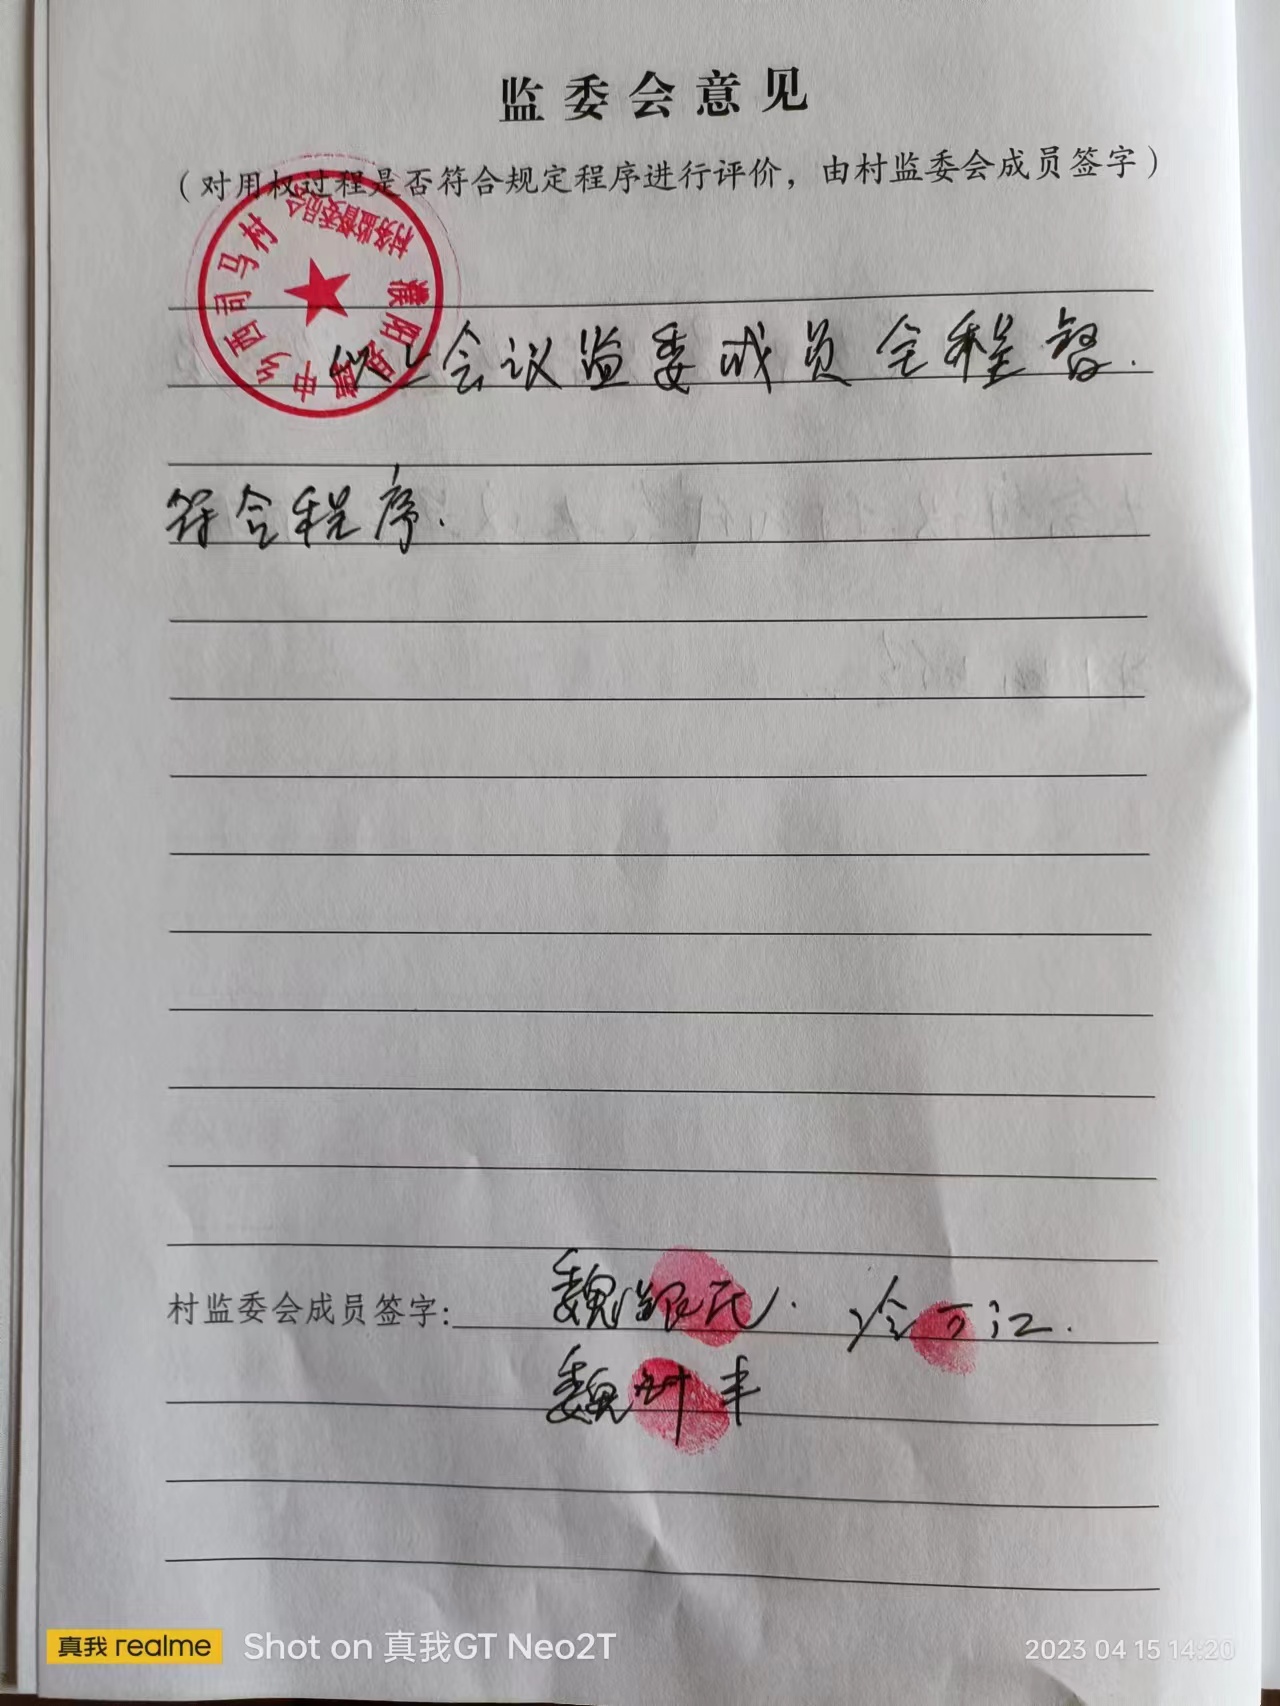 监委会意见
（对用权过程是否符合规定程序进行评价，由村监委会成员签字）
濮阳县 中乡西司马村
村务监督委员会
以上会议监委成员全程督.
符合程序.
村监委会成员签字: 魏 民. 冷 江.
魏 丰
真我 realme Shot on 真我GT Neo2T
2023 04 15 14:20